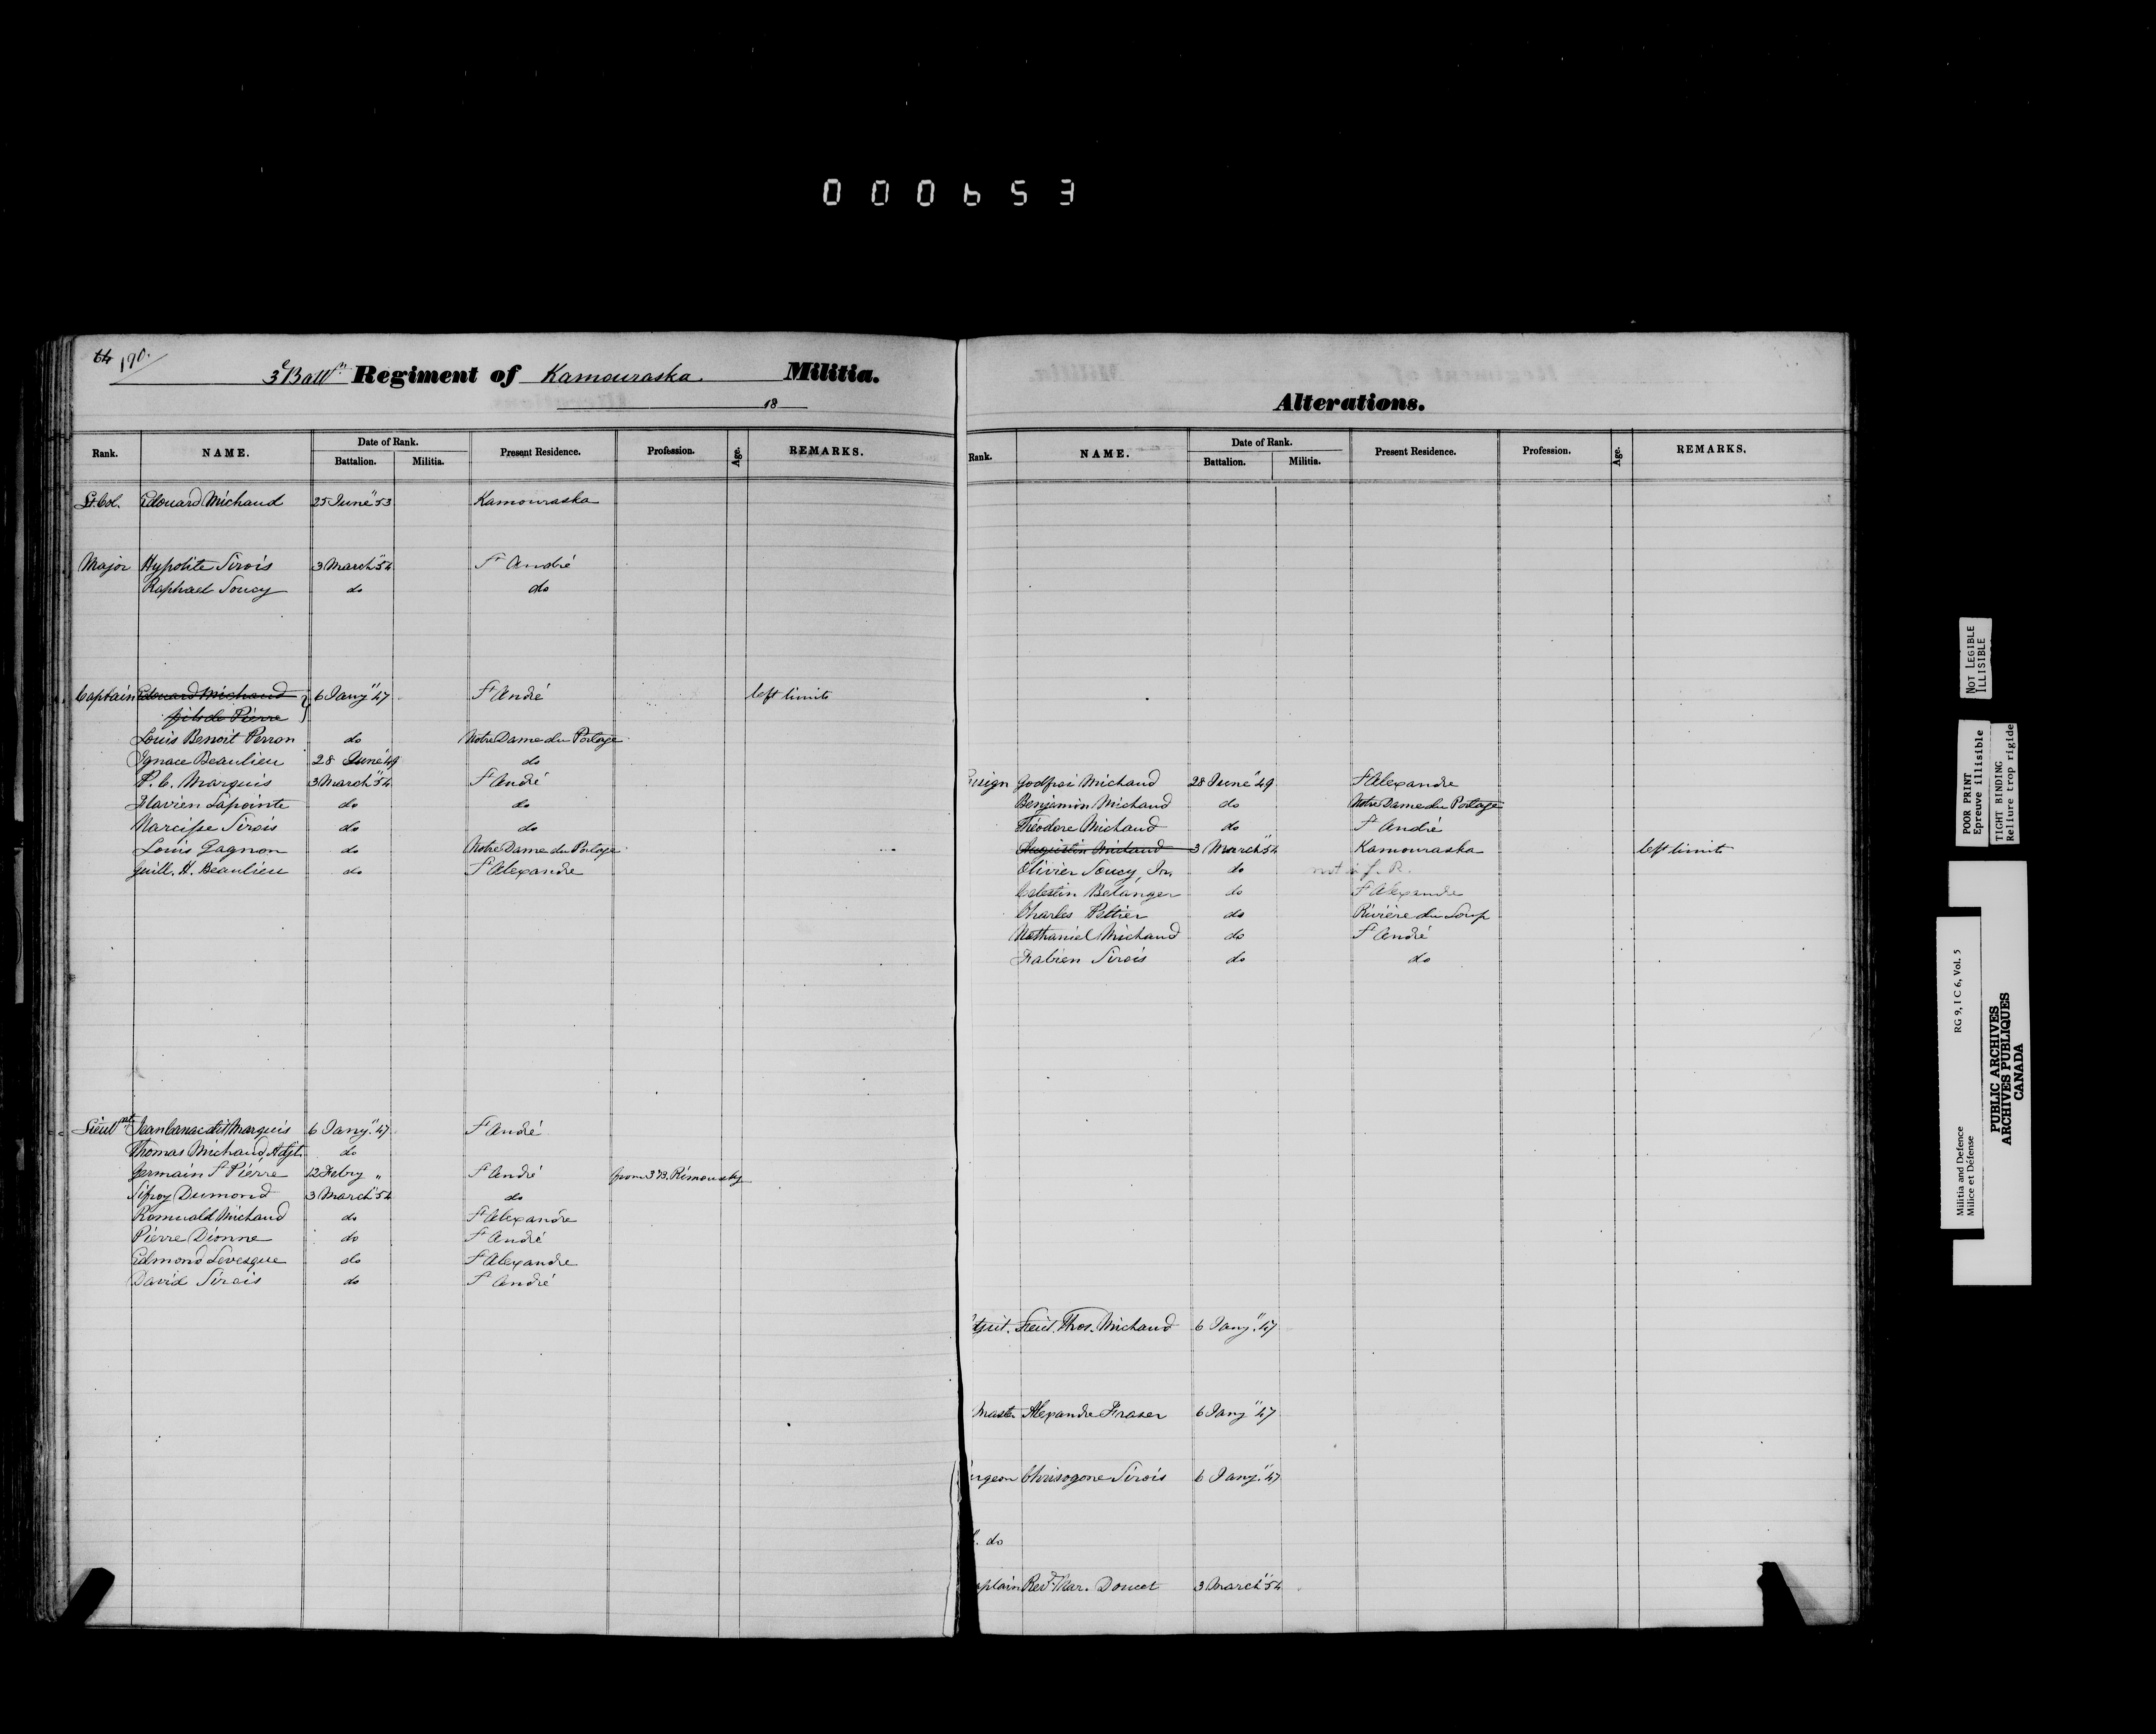 000653
64 190.
3e Batt.n Regiment of Kamouraska Militia.
18
Rank. NAME. Date of Rank. Battalion. Militia. Present Residence. Profession. Age. REMARKS.
Lt. Col. Edouard Michaud 25 June "53 Kamouraska
Major Hypolite Sirois 3 March "54 St André
Raphael Soucy do do
Captain Edouard Michaud 6 Jany "47 St André left limits
fils de Pierre
Louis Benoit Perron do Notre Dame du Portage
Ignace Beaulieu 28 June "49 do
P. C. Marquis 3 March "54 St André
Flavien Lapointe do do
Narcisse Sirois do do
Louis Gagnon do Notre Dame du Portage
Guill. H. Beaulieu do St Alexandre
Lieut.nt Jean Canac dit Marquis 6 Jany "47 St André
Thomas Michaud, Adjt. do
Germain St Pierre 12 Febry " St André from 3 B. Rimousky
Sifroy Dumond 3 March "54 do
Romuald Michaud do St Alexandre
Pierre Dionne do St André
Edmond Levesque do St Alexandre
David Sirois do St André
Alterations.
Rank. NAME. Date of Rank. Battalion. Militia. Present Residence. Profession. Age. REMARKS.
sign Godfroi Michaud 28 June "49 St Alexandre
Benjamin Michaud do Notre Dame du Portage
Théodore Michaud do St André
Augustin Michaud 3 March "54 Kamouraska left limits
Olivier Soucy, Jr. do not in
Celestin Belanger do St Alexandre
Charles Peltier do Rivière du Loup
Nathaniel Michaud do St André
Fabien Sirois do do
Lieut. Thos. Michaud 6 Jany "47
Master Alexandre Fraser 6 Jany "47
rgeon Chrisogone Sirois 6 Jany "47
do
aplain Revd. Mar. Doucet 3 March "54
NOT LEGIBLE
ILLISIBLE
POOR PRINT
Epreuve illisible
TIGHT BINDING
Reliure trop rigide
Militia and Defence RG 9, I C 6, Vol. 5
Milice et Défense
PUBLIC ARCHIVES
ARCHIVES PUBLIQUES
CANADA